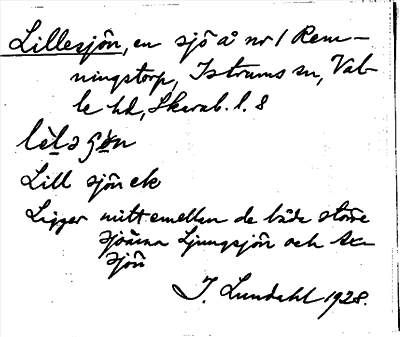 Lillesjön, en sjö å nr 1 Rem-
ningstorp, Istrums sn, Val-
le hd, Skarab. l. 8
Lill sjön ek
Ligger mitt emellan de båda större
sjöarna Ljungsjön och
sjön
J. Lundahl 1928.